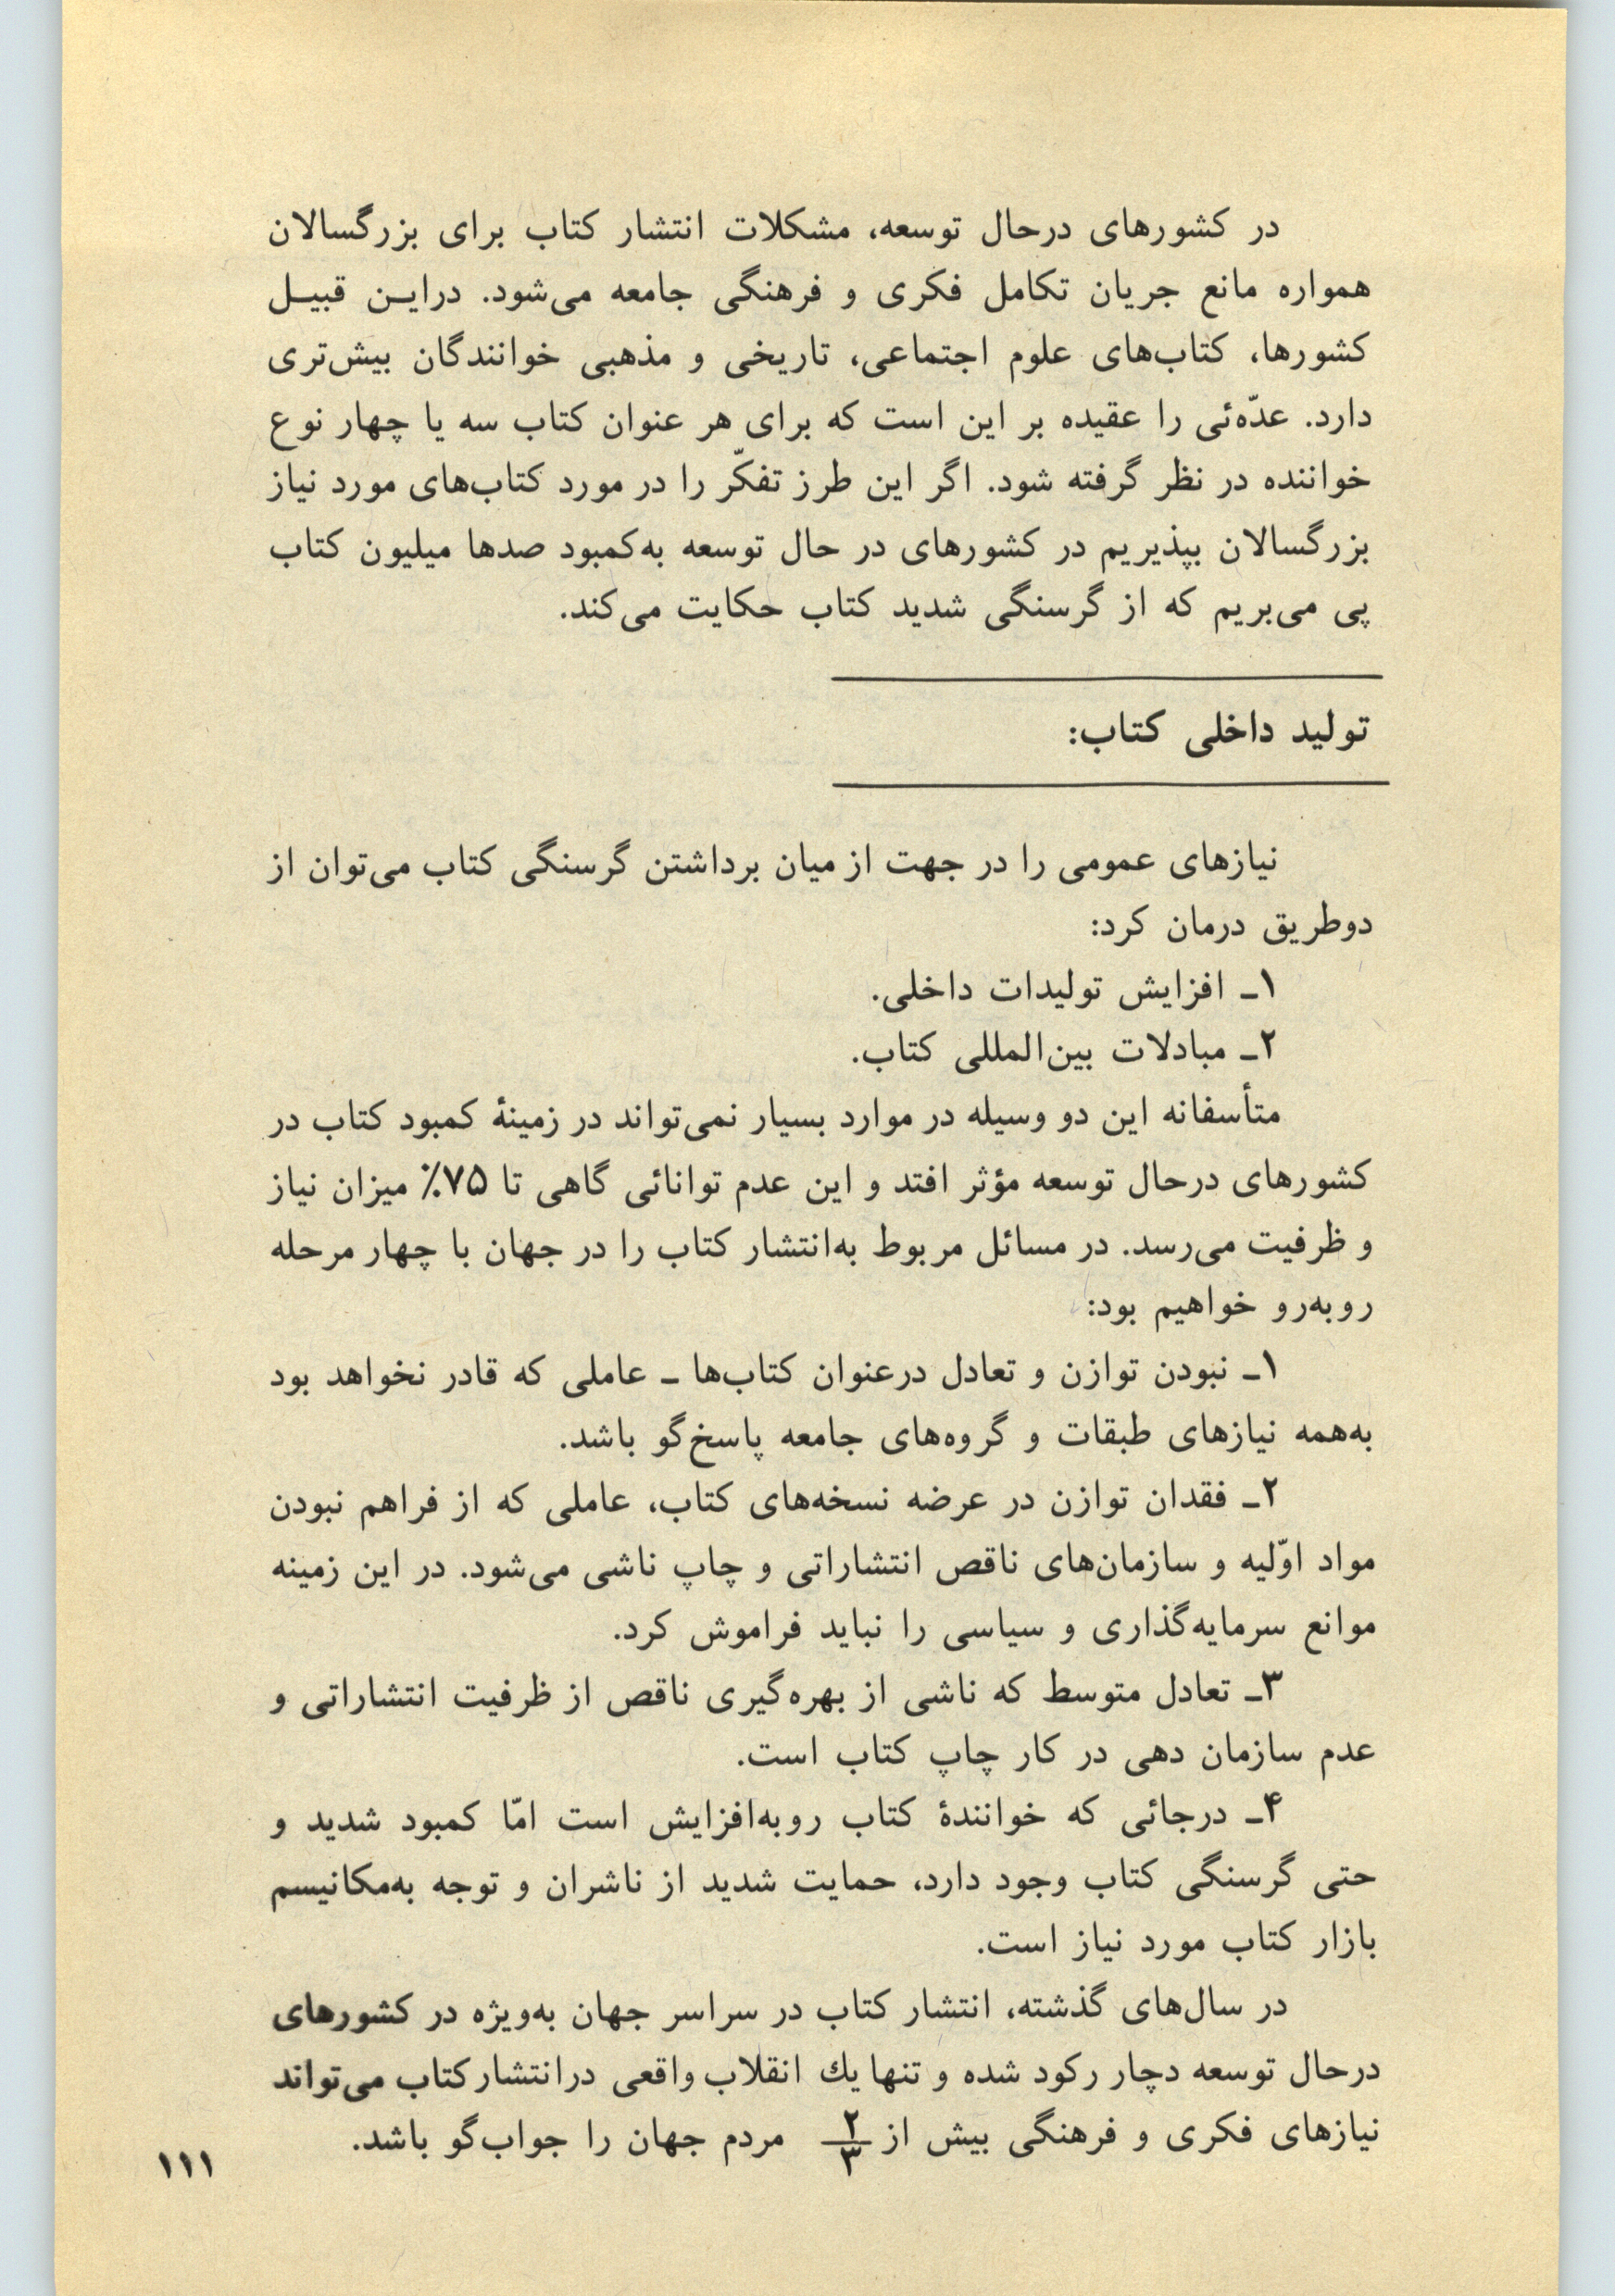 در کشورهای درحال توسعه، مشکلات انتشار کتاب برای بزرگسالان
همواره مانع جریان تکامل فکری و فرهنگی جامعه می‌شود. دراین قبیل
کشورها، کتاب‌های علوم اجتماعی، تاریخی و مذهبی خوانندگان بیش‌تری
دارد. عدّه‌ئی را عقیده بر این است که برای هر عنوان کتاب سه یا چهار نوع
خواننده در نظر گرفته شود. اگر این طرز تفکّر را در مورد کتاب‌های مورد نیاز
بزرگسالان بپذیریم در کشورهای در حال توسعه به‌کمبود صدها میلیون کتاب
پی می‌بریم که از گرسنگی شدید کتاب حکایت می‌کند.
تولید داخلی کتاب:
نیازهای عمومی را در جهت از میان برداشتن گرسنگی کتاب می‌توان از
دوطریق درمان کرد:
۱ـ افزایش تولیدات داخلی.
۲ـ مبادلات بین‌المللی کتاب.
متأسفانه این دو وسیله در موارد بسیار نمی‌تواند در زمینهٔ کمبود کتاب در
کشورهای درحال توسعه مؤثر افتد و این عدم توانائی گاهی تا ۷۵٪ میزان نیاز
و ظرفیت می‌رسد. در مسائل مربوط به‌انتشار کتاب را در جهان با چهار مرحله
روبه‌رو خواهیم بود:
۱ـ نبودن توازن و تعادل درعنوان کتاب‌ها ـ عاملی که قادر نخواهد بود
به‌همه نیازهای طبقات و گروه‌های جامعه پاسخ‌گو باشد.
۲ـ فقدان توازن در عرضه نسخه‌های کتاب، عاملی که از فراهم نبودن
مواد اوّلیه و سازمان‌های ناقص انتشاراتی و چاپ ناشی می‌شود. در این زمینه
موانع سرمایه‌گذاری و سیاسی را نباید فراموش کرد.
۳ـ تعادل متوسط که ناشی از بهره‌گیری ناقص از ظرفیت انتشاراتی و
عدم سازمان دهی در کار چاپ کتاب است.
۴ـ درجائی که خوانندهٔ کتاب روبه‌افزایش است امّا کمبود شدید و
حتی گرسنگی کتاب وجود دارد، حمایت شدید از ناشران و توجه به‌مکانیسم
بازار کتاب مورد نیاز است.
در سال‌های گذشته، انتشار کتاب در سراسر جهان به‌ویژه در کشورهای
درحال توسعه دچار رکود شده و تنها یك انقلاب واقعی درانتشارکتاب می‌تواند
نیازهای فکری و فرهنگی بیش از ۲/۳ مردم جهان را جواب‌گو باشد.
۱۱۱